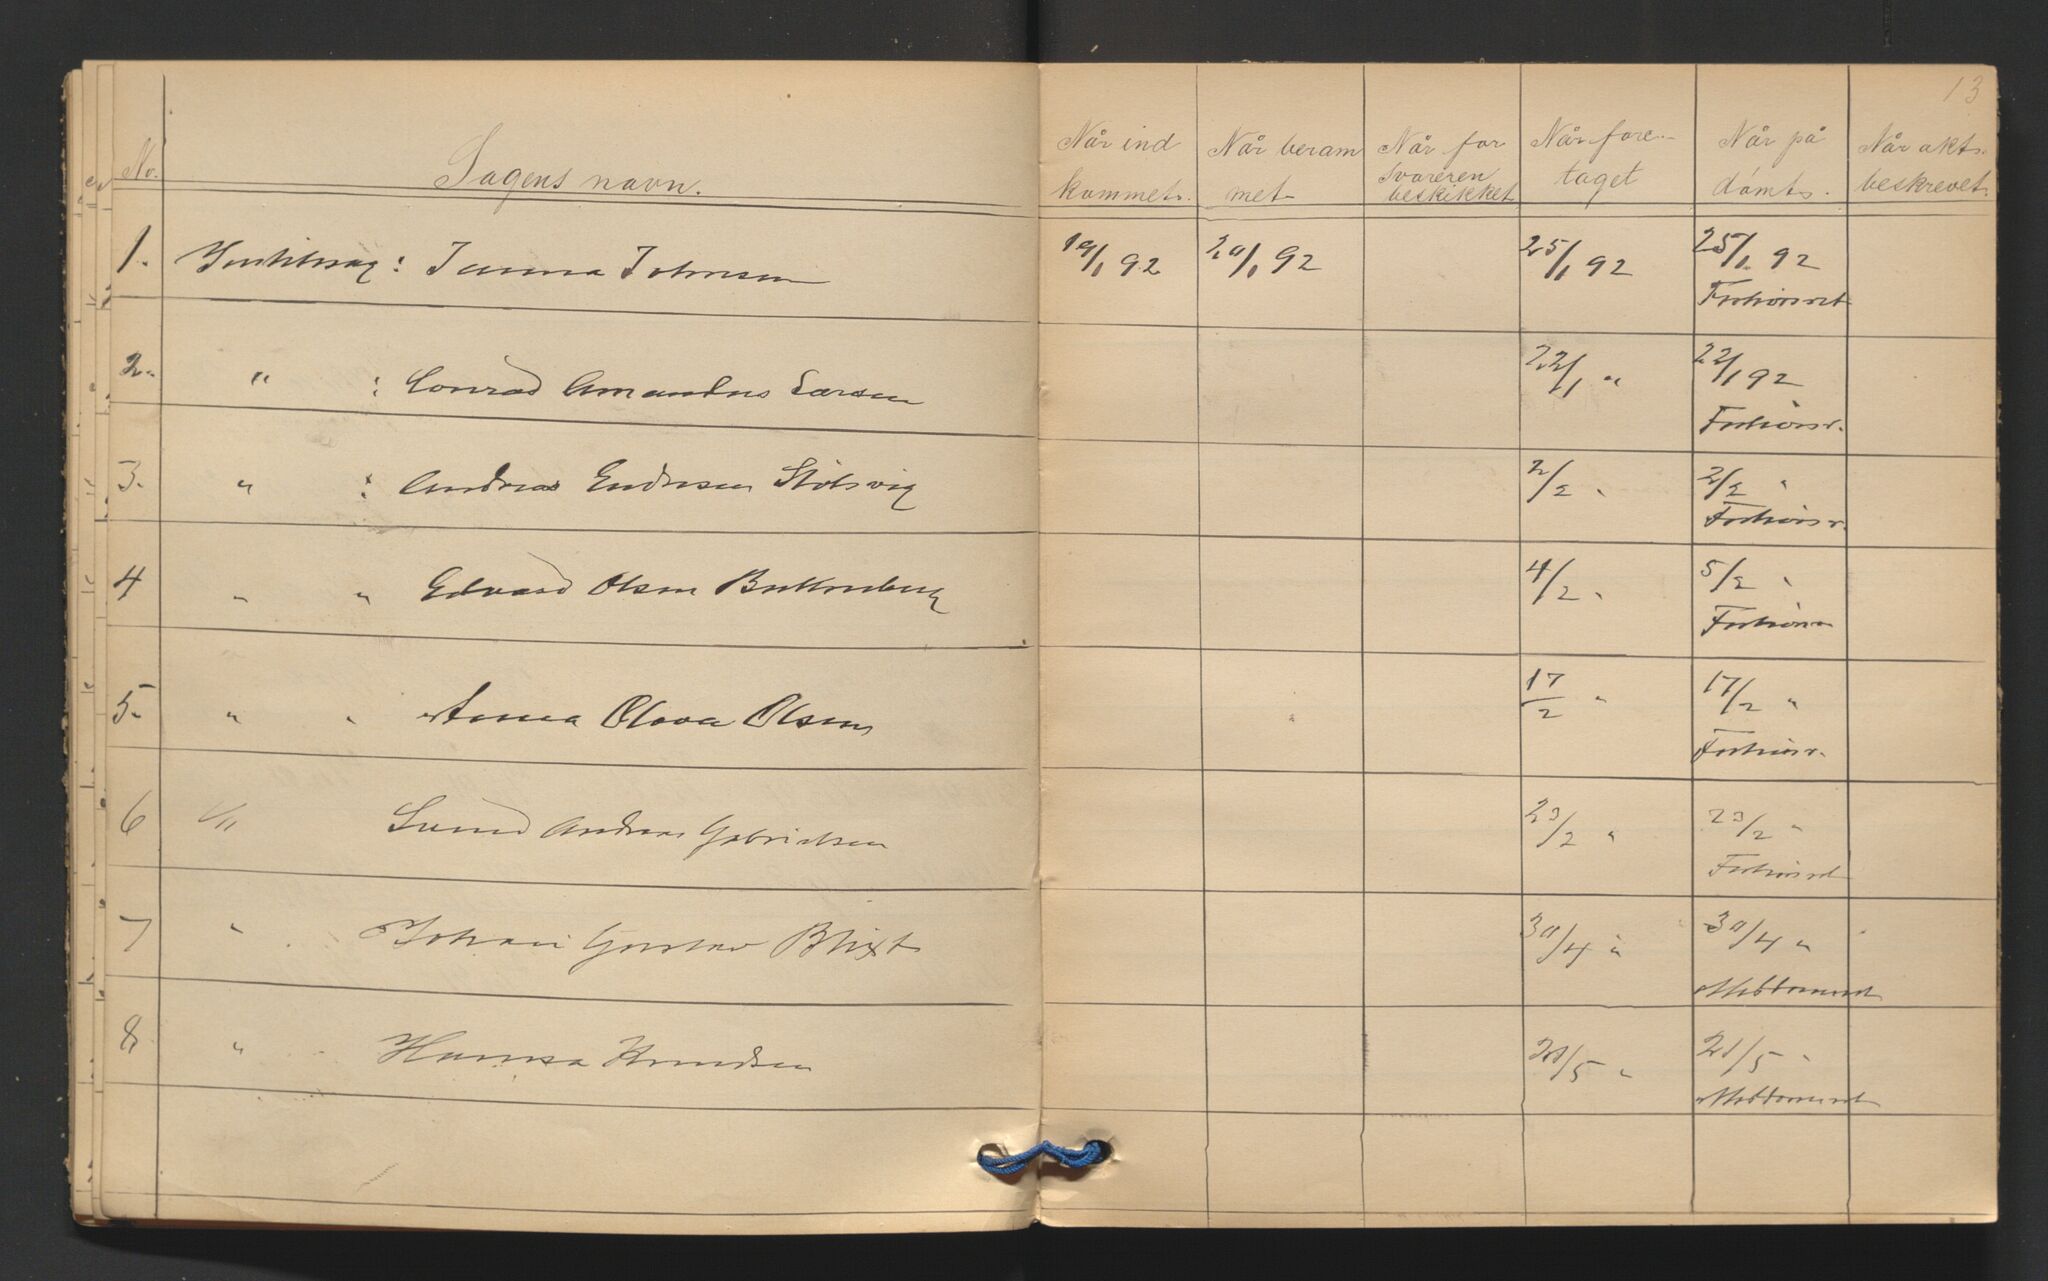 13
No. Sagens navn. Når ind kommet. Når beram met Når for svareren beskikket Når fore- taget Når på dömt. Når akts- beskrevet.
1. Justitssag: Janna Johnsen 19/1 92 20/1 92 25/1 92 25/1 92
Forhörsret
2. " : Conrad Amandus Larsen 22/1 " 22/1 92
Forhörsr.
3. " : Andreas Endresen Stölsvig 2/2 " 2/2 "
Forhörsr.
4 " " Edvard Olsen 4/2 " 5/2 "
Forhörsr
5. " " Anna Olava Olsen 17/2 " 17/2 "
Forhörsr.
6 " Svend Andreas Gabrielsen 23/2 " 23/2 "
Forhörsret
7 " Johan Gustav Blixt 30/4 " 30/4 "
Meddomsret
8 " Hanna Knudsen 21/5 " 21/5 "
Meddomsret